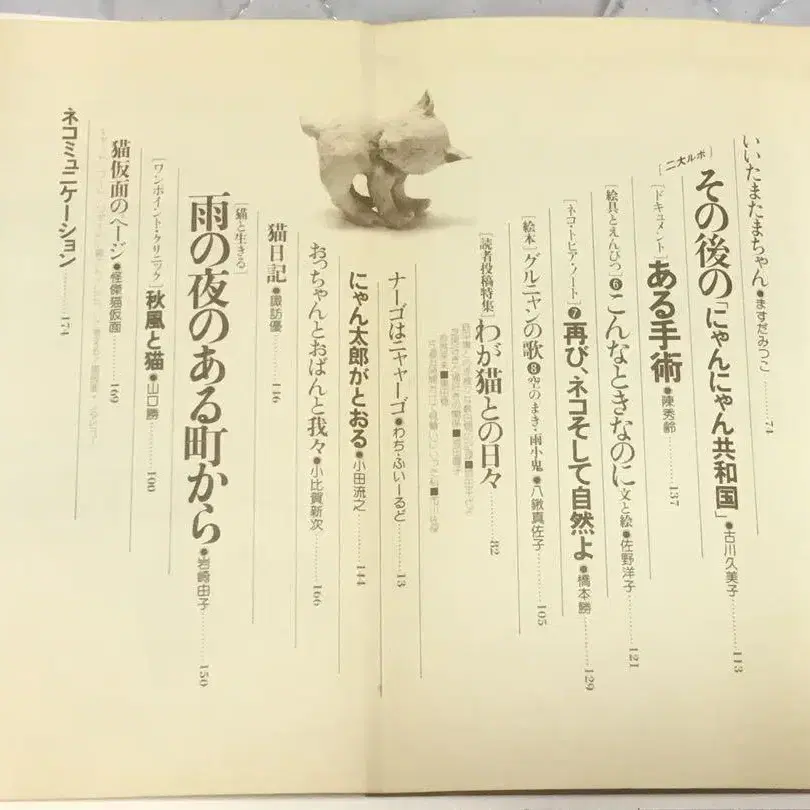 いいたまたまちゃん●ますだみつこ………74
[二大ルポ]
その後の「にゃんにゃん共和国」●古川久美子………113
[ドキュメント]ある手術●陳秀齢………137
[絵具とえんぴつ]❻こんなときなのに 文と絵●佐野洋子………121
[ネコ・トピア・ノート]❼再び、ネコそして自然よ●橋本勝………129
[絵本]グルニャンの歌❽空のまき・雨小鬼●八鍬真佐子………105
[読者投稿特集]わが猫との日々………82
ナーゴはニャーゴ●わち・ふぃーるど………13
にゃん太郎がとおる●小田流之………144
おっちゃんとおばんと我々●小比賀新次………166
猫日記●諏訪優………146
[猫と生きる]
雨の夜のある町から●岩崎由子………150
[ワンポイント・クリニック]秋風と猫●山口勝………100
猫仮面のページ●怪傑猫仮面………169
ネコミュニケーション………174